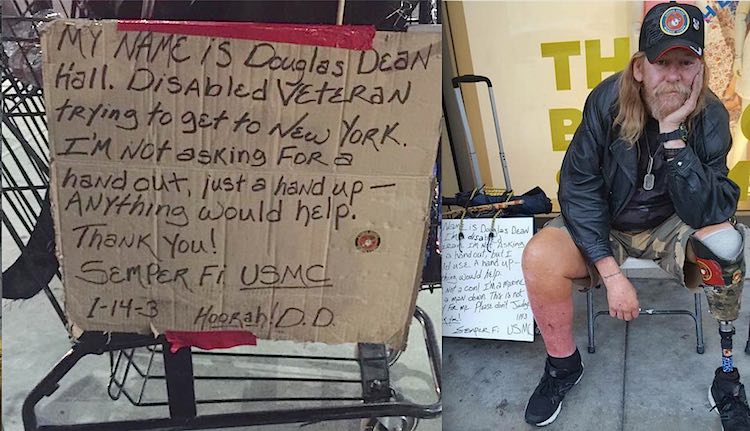 MY NAME is Douglas Dean
Hall. DisAbled VETERAN
trying to get to New York.
I'm Not asking For a
hand out, just a hand up –
Anything would help.
Thank you!
SEMPER Fi USMC
1-14-3 Hoorah! D.D.
TH
B
NAME is Douglas Dean
I'm disabled
I'm Not Asking
a hand out, but I
USE A hand up –
would help.
Not a con! I'm a marine
a man down. This is not
for me. Please don't Judge
SEMPER Fi USMC